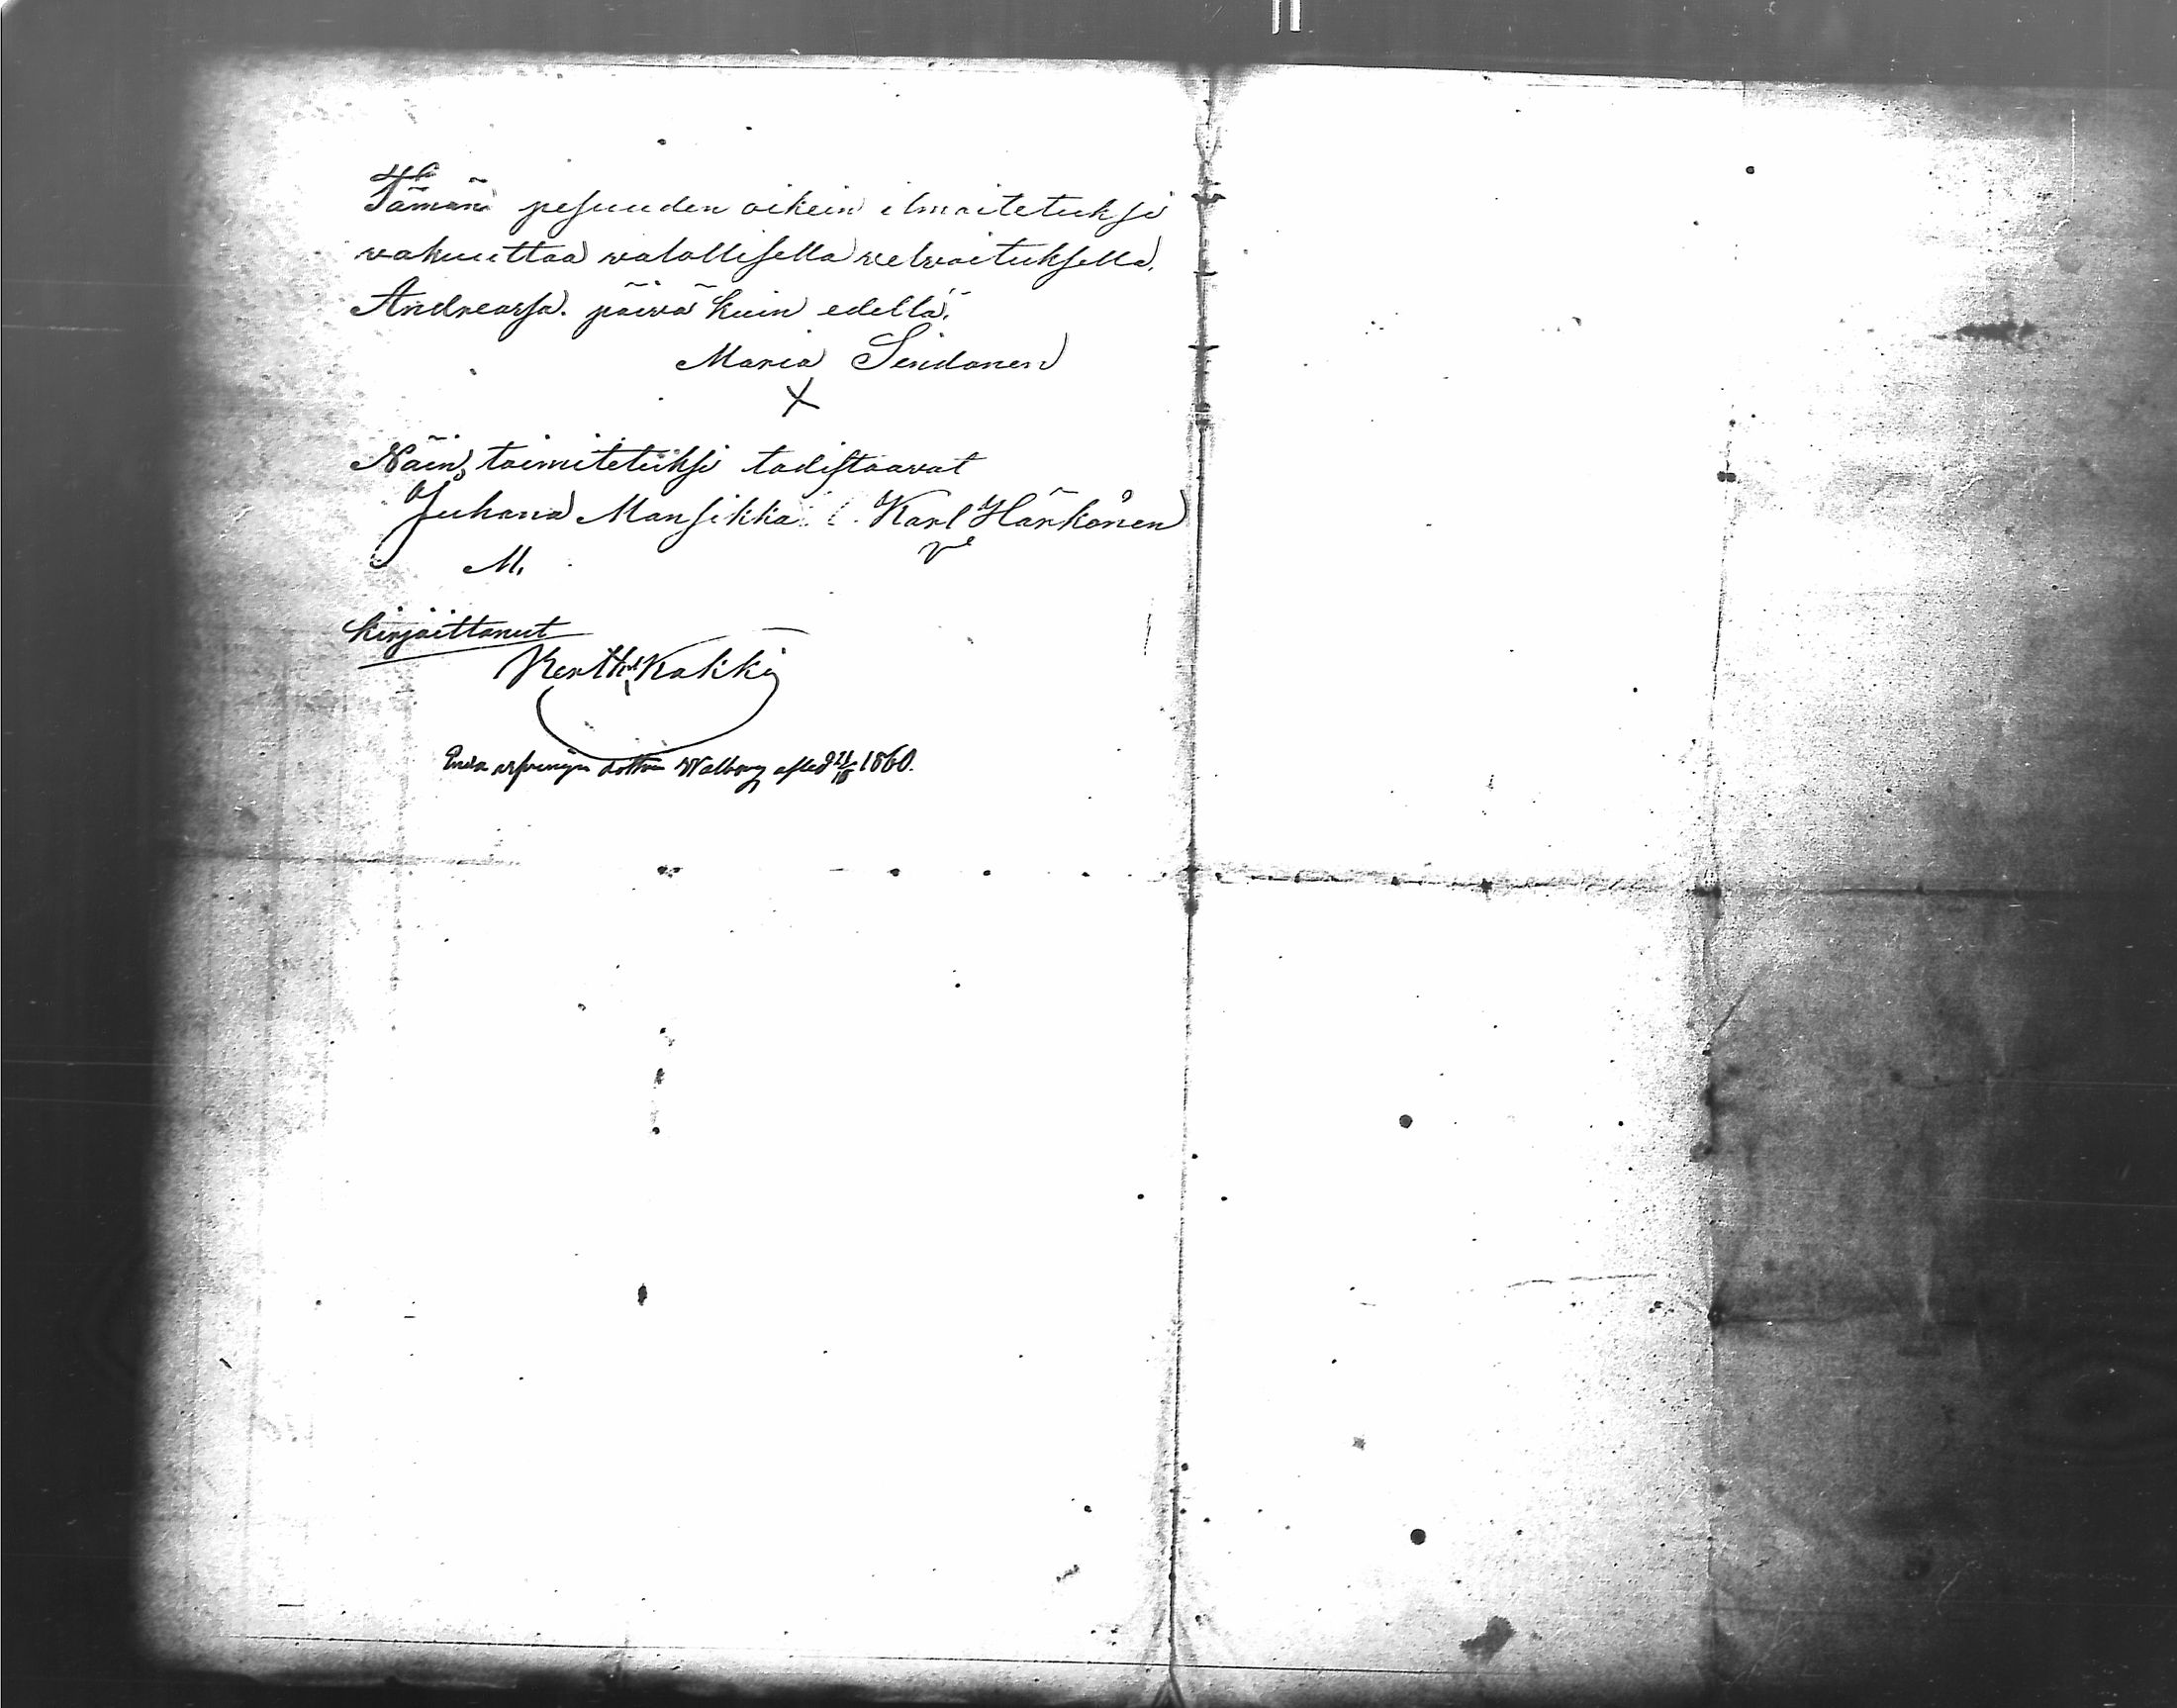 Tämän pesuuden oikein ilmoitetuksi
wakuuttaa walallisella welwoituksella.
Andreassa. päiwä kuin edellä.
Maria Seidonen
X
Näin, toimitetuksi todistaavat
Juhana Mansikka Karl Härkönen
M.
kirjoittanut
Kakki
Enda arfvingen dottren Walborg afled 1860.